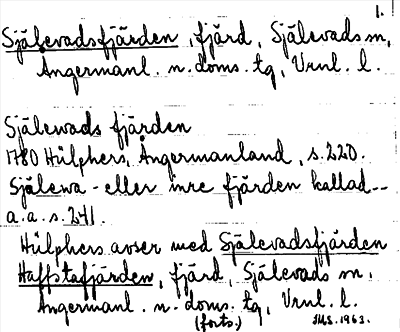 1.
Själevadsfjärden, fjärd, Själevads sn,
Ångermanl. n. doms. tg, Vrnl. l.
Själevads fjärden
1780 Hülphers, Ångermanland, s. 220.
Själewa - eller inre fjärden kallad--
a.a. s. 241.
Hülphers avser med Själevadsfjärden
Haffstafjärden, fjärd, Själevads sn.
Ångermanl. n. doms. tg, Vrnl. l.
(forts.) 1963.